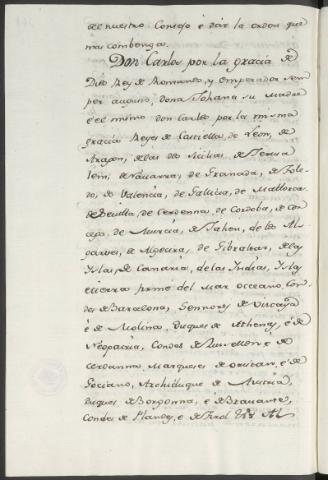 del nuestro Consejo é dár la orden que
mas combenga.
Don Carlos por la gracia de
Dios Rey de Romanos, y Emperador sem
per augusto, doña Johana su Madre
é el mismo don Carlos por la misma
gracia Reyes de Castiella, de Leon, de
Aragon, de las dos Sicilias, de Jerusa
lem, de Navarra, de Granada, de Tole-
do, de Valencia, de Galicia, de Mallorcas
de Sevilla, de Cerdenna, de Cordoba, de Cor
cega, de Murcia, de Jahen, de los Al
garves, de Algecira, de Gibraltar, de las
Islas de Canaria, de las Indias, Islas
é tierra firme del Mar Oceano, Con-
des de Barcelona, Sennores de Vizcaya
é de Molina, Duques de Athenas, é de
Neopatria, Condes de Ruisellon é de
Cerdannia, Marqueses de Oristan, é de
Gociano, Archiduque de Austria,
Duques de Borgonna, é de Bravante,
Condes de Flandes, é de Tirol &c. Al